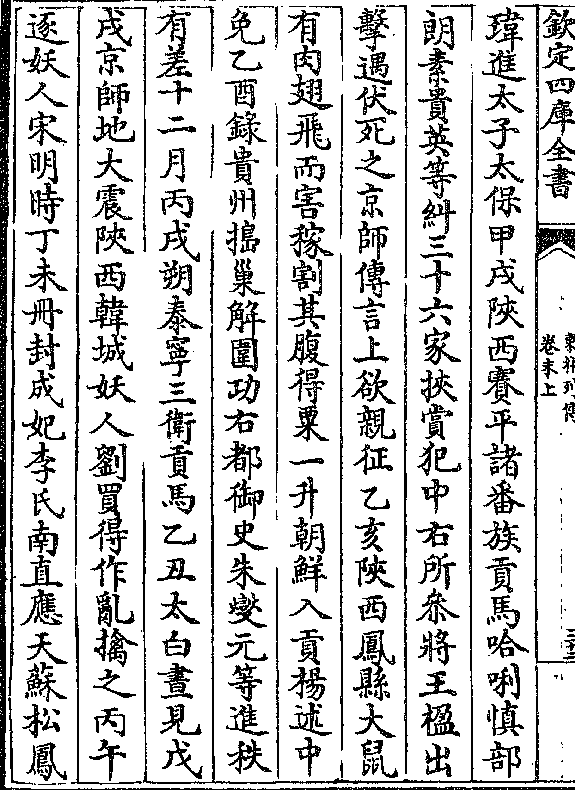 欽定四庫全書
東林列傳
卷末上
瑋進太子太保甲戌陜西賽平諸番族貢馬哈唎慎部
朗素貴英等糾三十六家挾賞犯中右所叅將王楹出
擊遇伏死之京師傳言上欲親征乙亥陜西鳳縣大鼠
有肉翅飛而害稼割其腹得粟一升朝鮮入貢楊述中
免乙酉錄貴州搗巢解圍功右都御史朱燮元等進秩
有差十二月丙戌朔泰寧三衛貢馬乙丑太白晝見戊
戌京師地大震陜西韓城妖人劉買得作亂擒之丙午
逐妖人宋明時丁未冊封成妃李氏南直應天蘇松鳳